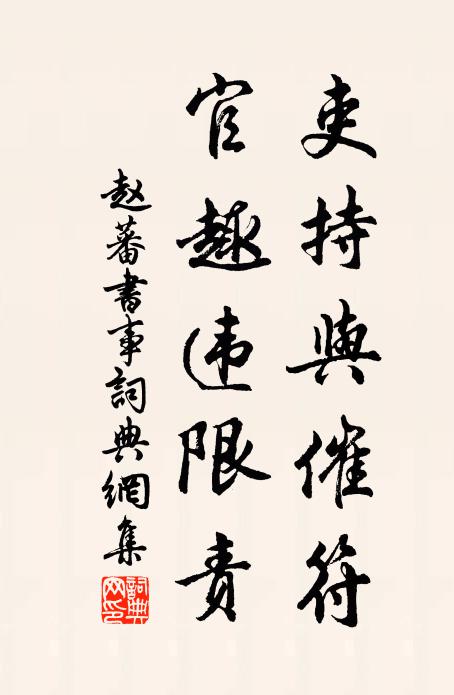 吏持與催符
官趣违限责
赵蕃書事詞典網集
詞典网印